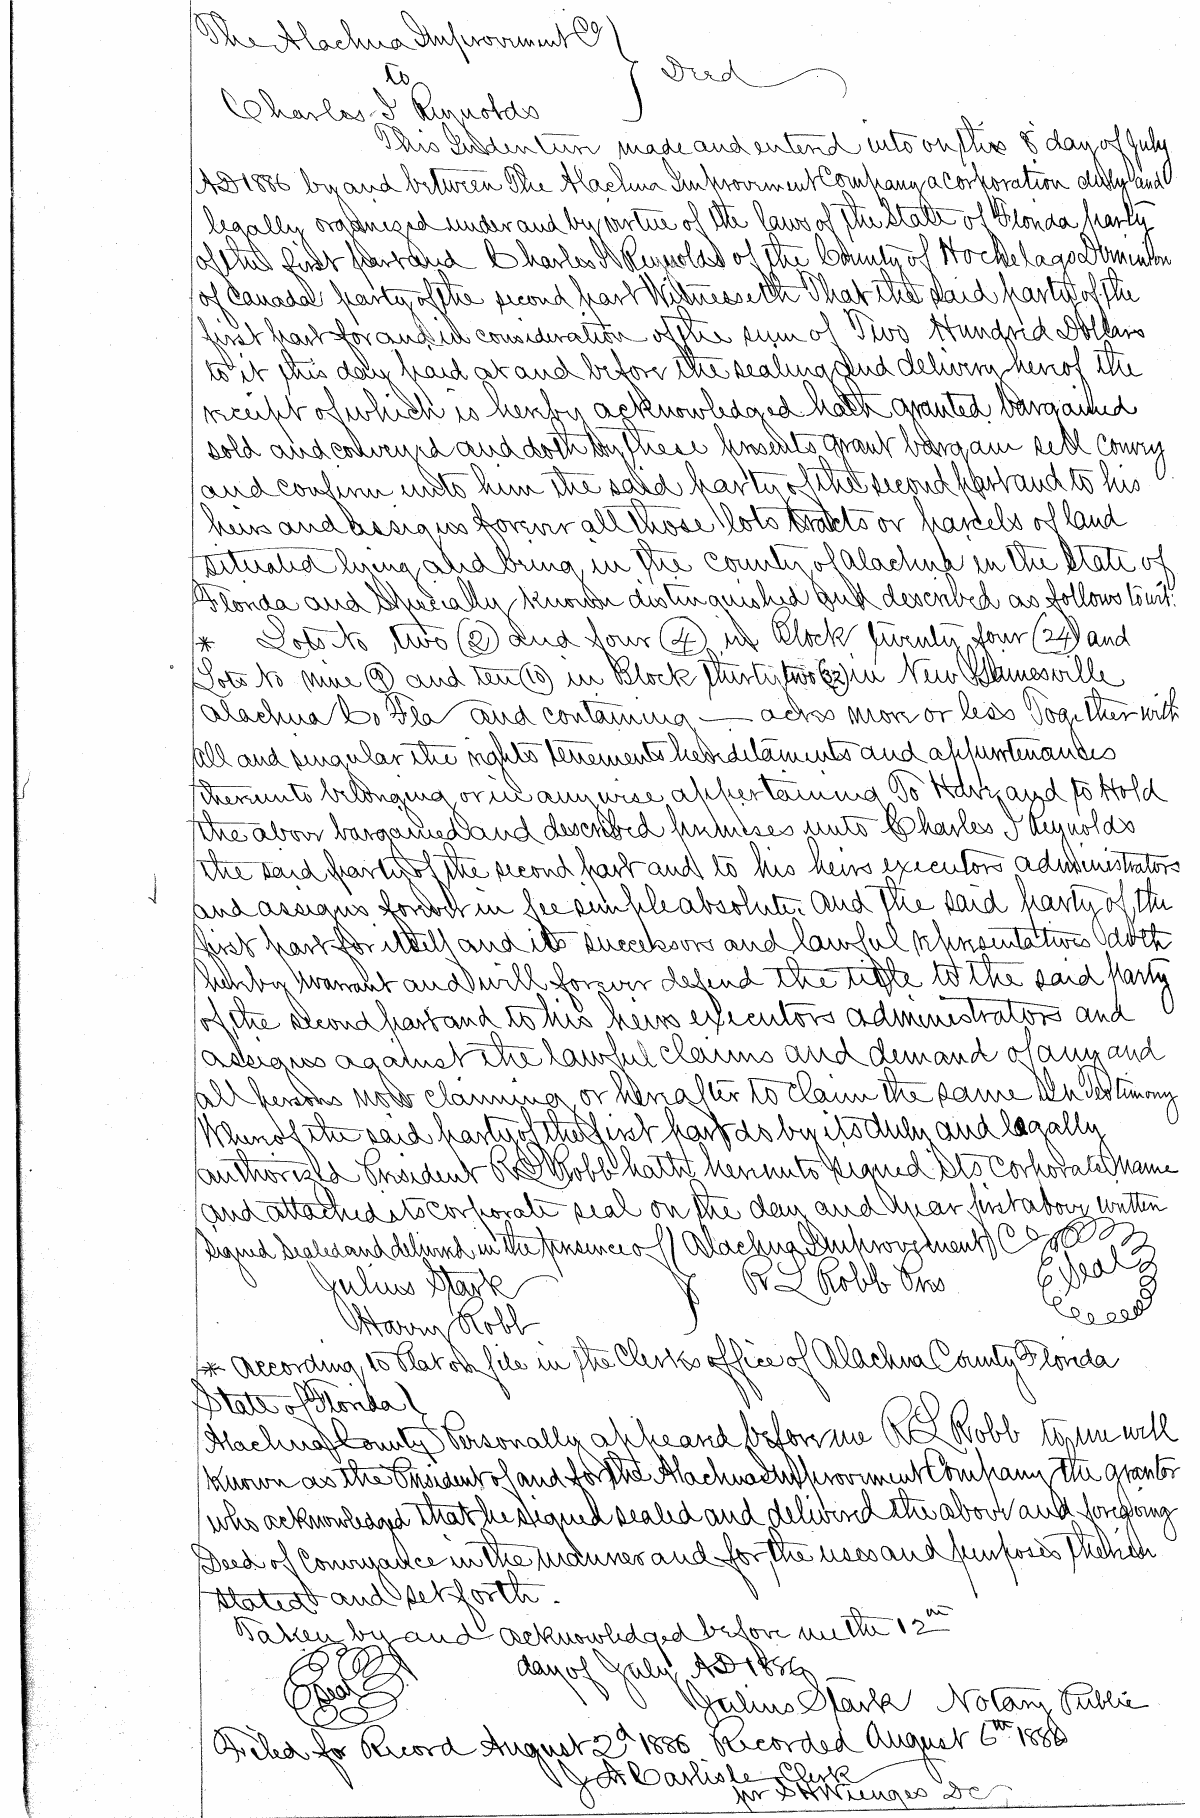 The Alachua Improvement Co
to } Deed
Charles J Reynolds
This Indenture made and entered into on this 8 day of July
AD 1886 by and between The Alachua Improvement Company a corporation duly and
legally organized under and by virtue of the laws of the State of Florida party
of the first part and Charles J Reynolds of the County of Hochelaga Dominion
of Canada party of the second part Witnesseth That the said party of the
first part for and in consideration of the sum of Two Hundred Dollars
to it this day paid at and before the sealing and delivery hereof the
receipt of which is hereby acknowledged hath granted bargained
sold and conveyed and doth by these presents grant bargain sell convey
and confirm unto him the said party of the second part and to his
heirs and assigns forever all those lots tracts or parcels of land
situated lying and being in the county of Alachua in the State of
Florida and Specially known distinguished and described as follows towit:
* Lots No two (2) and four (4) in Block twenty four (24) and
Lots No nine (9) and ten (10) in Block thirty two (32) in New Gainesville
Alachua Co Fla and containing — acres more or less Together with
all and singular the rights tenements hereditaments and appurtenances
thereunto belonging or in anywise appertaining To Have and to Hold
the above bargained and described premises unto Charles J Reynolds
the said party of the second part and to his heirs executors administrators
and assigns forever in fee simple absolute. And the said party of the
first part for itself and its successors and lawful representatives doth
hereby warrant and will forever defend the title to the said party
of the second part and to his heirs executors administrators and
assigns against the lawful claims and demand of any and
all persons now claiming or hereafter to claim the same In Testimony
Whereof the said party of the first part do by its duly and legally
authorized President R L Robb hath hereunto signed its corporate name
and attached its corporate seal on the day and year first above written
Signed Sealed and delivered in the presence of ( Alachua Improvement Co
Julius Stark } R L Robb Pres Seal
Harry Robb
* According to Plat on file in the Clerks office of Alachua County Florida
State of Florida (
Alachua County ) Personally appeared before me R L Robb to me well
known as the President of and for the Alachua Improvement Company the grantor
who acknowledged that he signed sealed and delivered the above and foregoing
Deed of Conveyance in the manner and for the uses and purposes therein
stated and set forth.
Taken by and acknowledged before me the 12th
Seal day of July AD 1886
Julius Stark Notary Public
Filed for Record August 2d 1886 Recorded August 6th 1886
J A Carlisle Clerk
pr S H Wienges DC